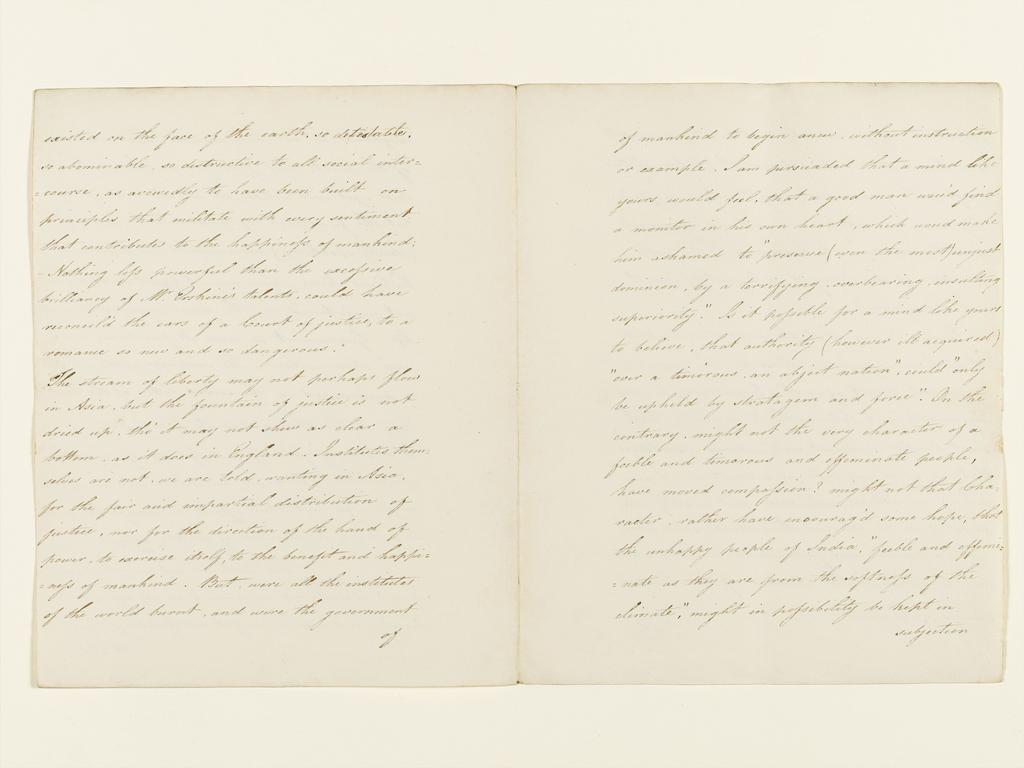 existed on the face of the earth, so detestable,
so abominable, so distructive to all social inter=
=course, as avowedly to have been built on
principles that militate with every sentiment
that contributes to the happiness of mankind;
- Nothing less powerful than the excessive
brilliancy of Mr. Erskine's talents, could have
reconcil'd the ears of a Court of justice, to a
romance so new and so dangerous.
The stream of liberty may not perhaps flow
in Asia, but the fountain of justice is not
dried up, tho' it may not shew as clear a
bottom, as it does in England. Institutes them=
selves are not, we are told, wanting in Asia,
for the fair and impartial distribution of
justice, nor for the direction of the hand of
power, to exercise itself, to the benefit and happi=
=ness of mankind. But, were all the institutes
of the world burnt, and were the government
of
of mankind to begin anew, without instruction
or example, I am persuaded that a mind like
yours would feel, that a good man wou'd find
a monitor in his own heart, which wou'd make
him ashamed to "preserve (even the most) unjust
dominion, by a terrifying, overbearing, insulting
superiority." Is it possible for a mind like yours
to believe, that authority (however ill acquired)
"over a timorous, an abject nation", could "only
be upheld by stratagem and force". On the
contrary, might not the very character of a
feeble and timorous and effeminate people,
have moved compassion? might not that Cha=
racter, rather have encourag'd some hope, that
the unhappy people of India, "feeble and effemi=
=nate as they are from the softness of the
climate", might in possibility be kept in
subjection